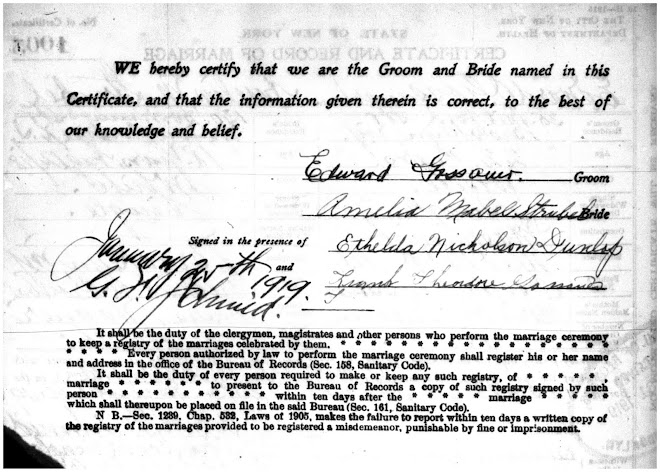 WE hereby certify that we are the Groom and Bride named in this
Certificate, and that the information given therein is correct, to the best of
our knowledge and belief.
Edward Groom
Amelia Mabel Bride
Signed in the presence of Ethelda Nicholson Dunlop
and Theodore
January 20th
1919.
G.
It shall be the duty of the clergymen, magistrates and other persons who perform the marriage ceremony
to keep a registry of the marriages celebrated by them. * * * * * * * * * * * * * * * * * * *
* * * * * Every person authorized by law to perform the marriage ceremony shall register his or her name
and address in the office of the Bureau of Records (Sec. 158, Sanitary Code).
It shall be the duty of every person required to make or keep any such registry, of * * * * *
marriage * * * * * * to present to the Bureau of Records a copy of such registry signed by such
person * * * * * * * * * within ten days after the * * * * * marriage * * * * *
which shall thereupon be placed on file in the said Bureau (Sec. 161, Sanitary Code).
N B.—Sec. 1239, Chap. 532, Laws of 1905, makes the failure to report within ten days a written copy of
the registry of the marriages provided to be registered a misdemeanor, punishable by fine or imprisonment.